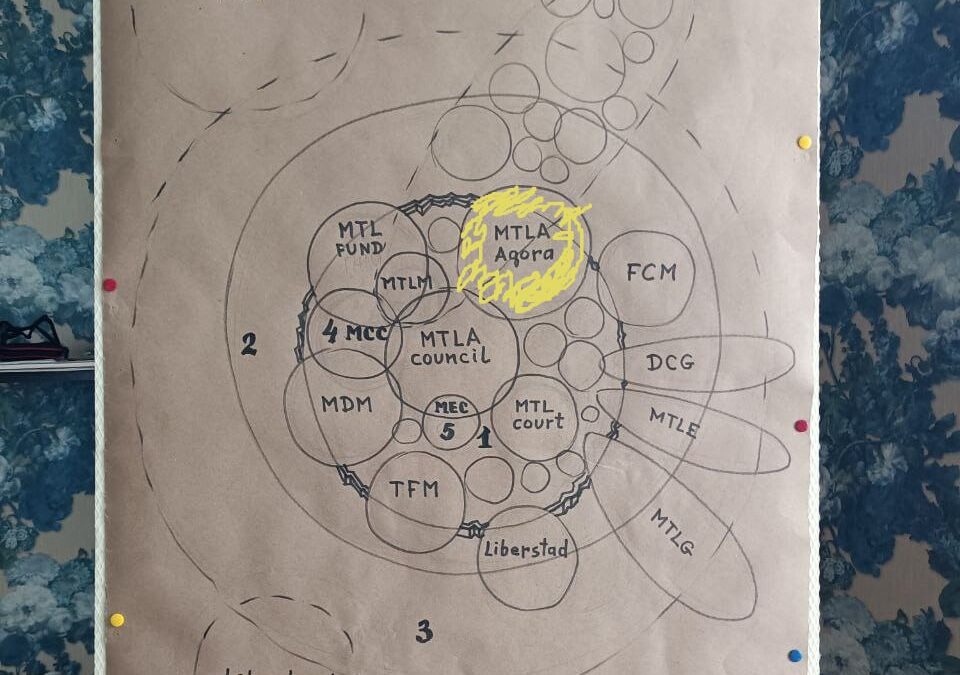 MTL
FUND
MTLA
Agora
MTLM
FCM
4 MCC
MTLA
council
2
DCG
MDM
MEC
5
1
MTL
court
MTLE
TFM
MTLG
Liberstad
3